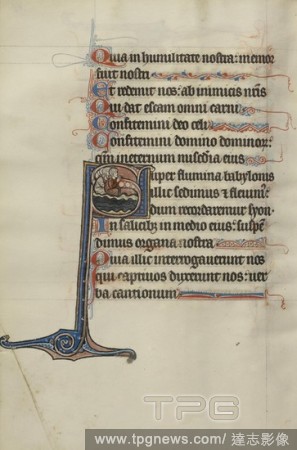 Quia in humilitate nostra: memor
fuit nostri
Et redemit nos: ab inimicis nr̄is
Qui dat escam omni carni
Confitemini deo celi
Confitemini domino dominor:
qm̄ in eternum
Super flumina babylonis
illic sedimus et flevim:
dum recordaremur syon
In salicib; in medio eius: suspen
dimus organa nostra
Quia illic interrogaverunt nos
qui captivos duxerunt nos: ver
ba cantionum
TPG
www.tpgnews.com/達志影像